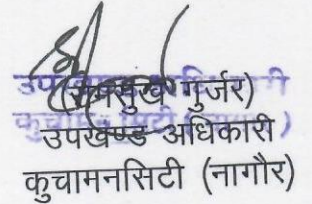 (रामसुख गुर्जर)
उपखण्ड अधिकारी
कुचामनसिटी (नागौर)